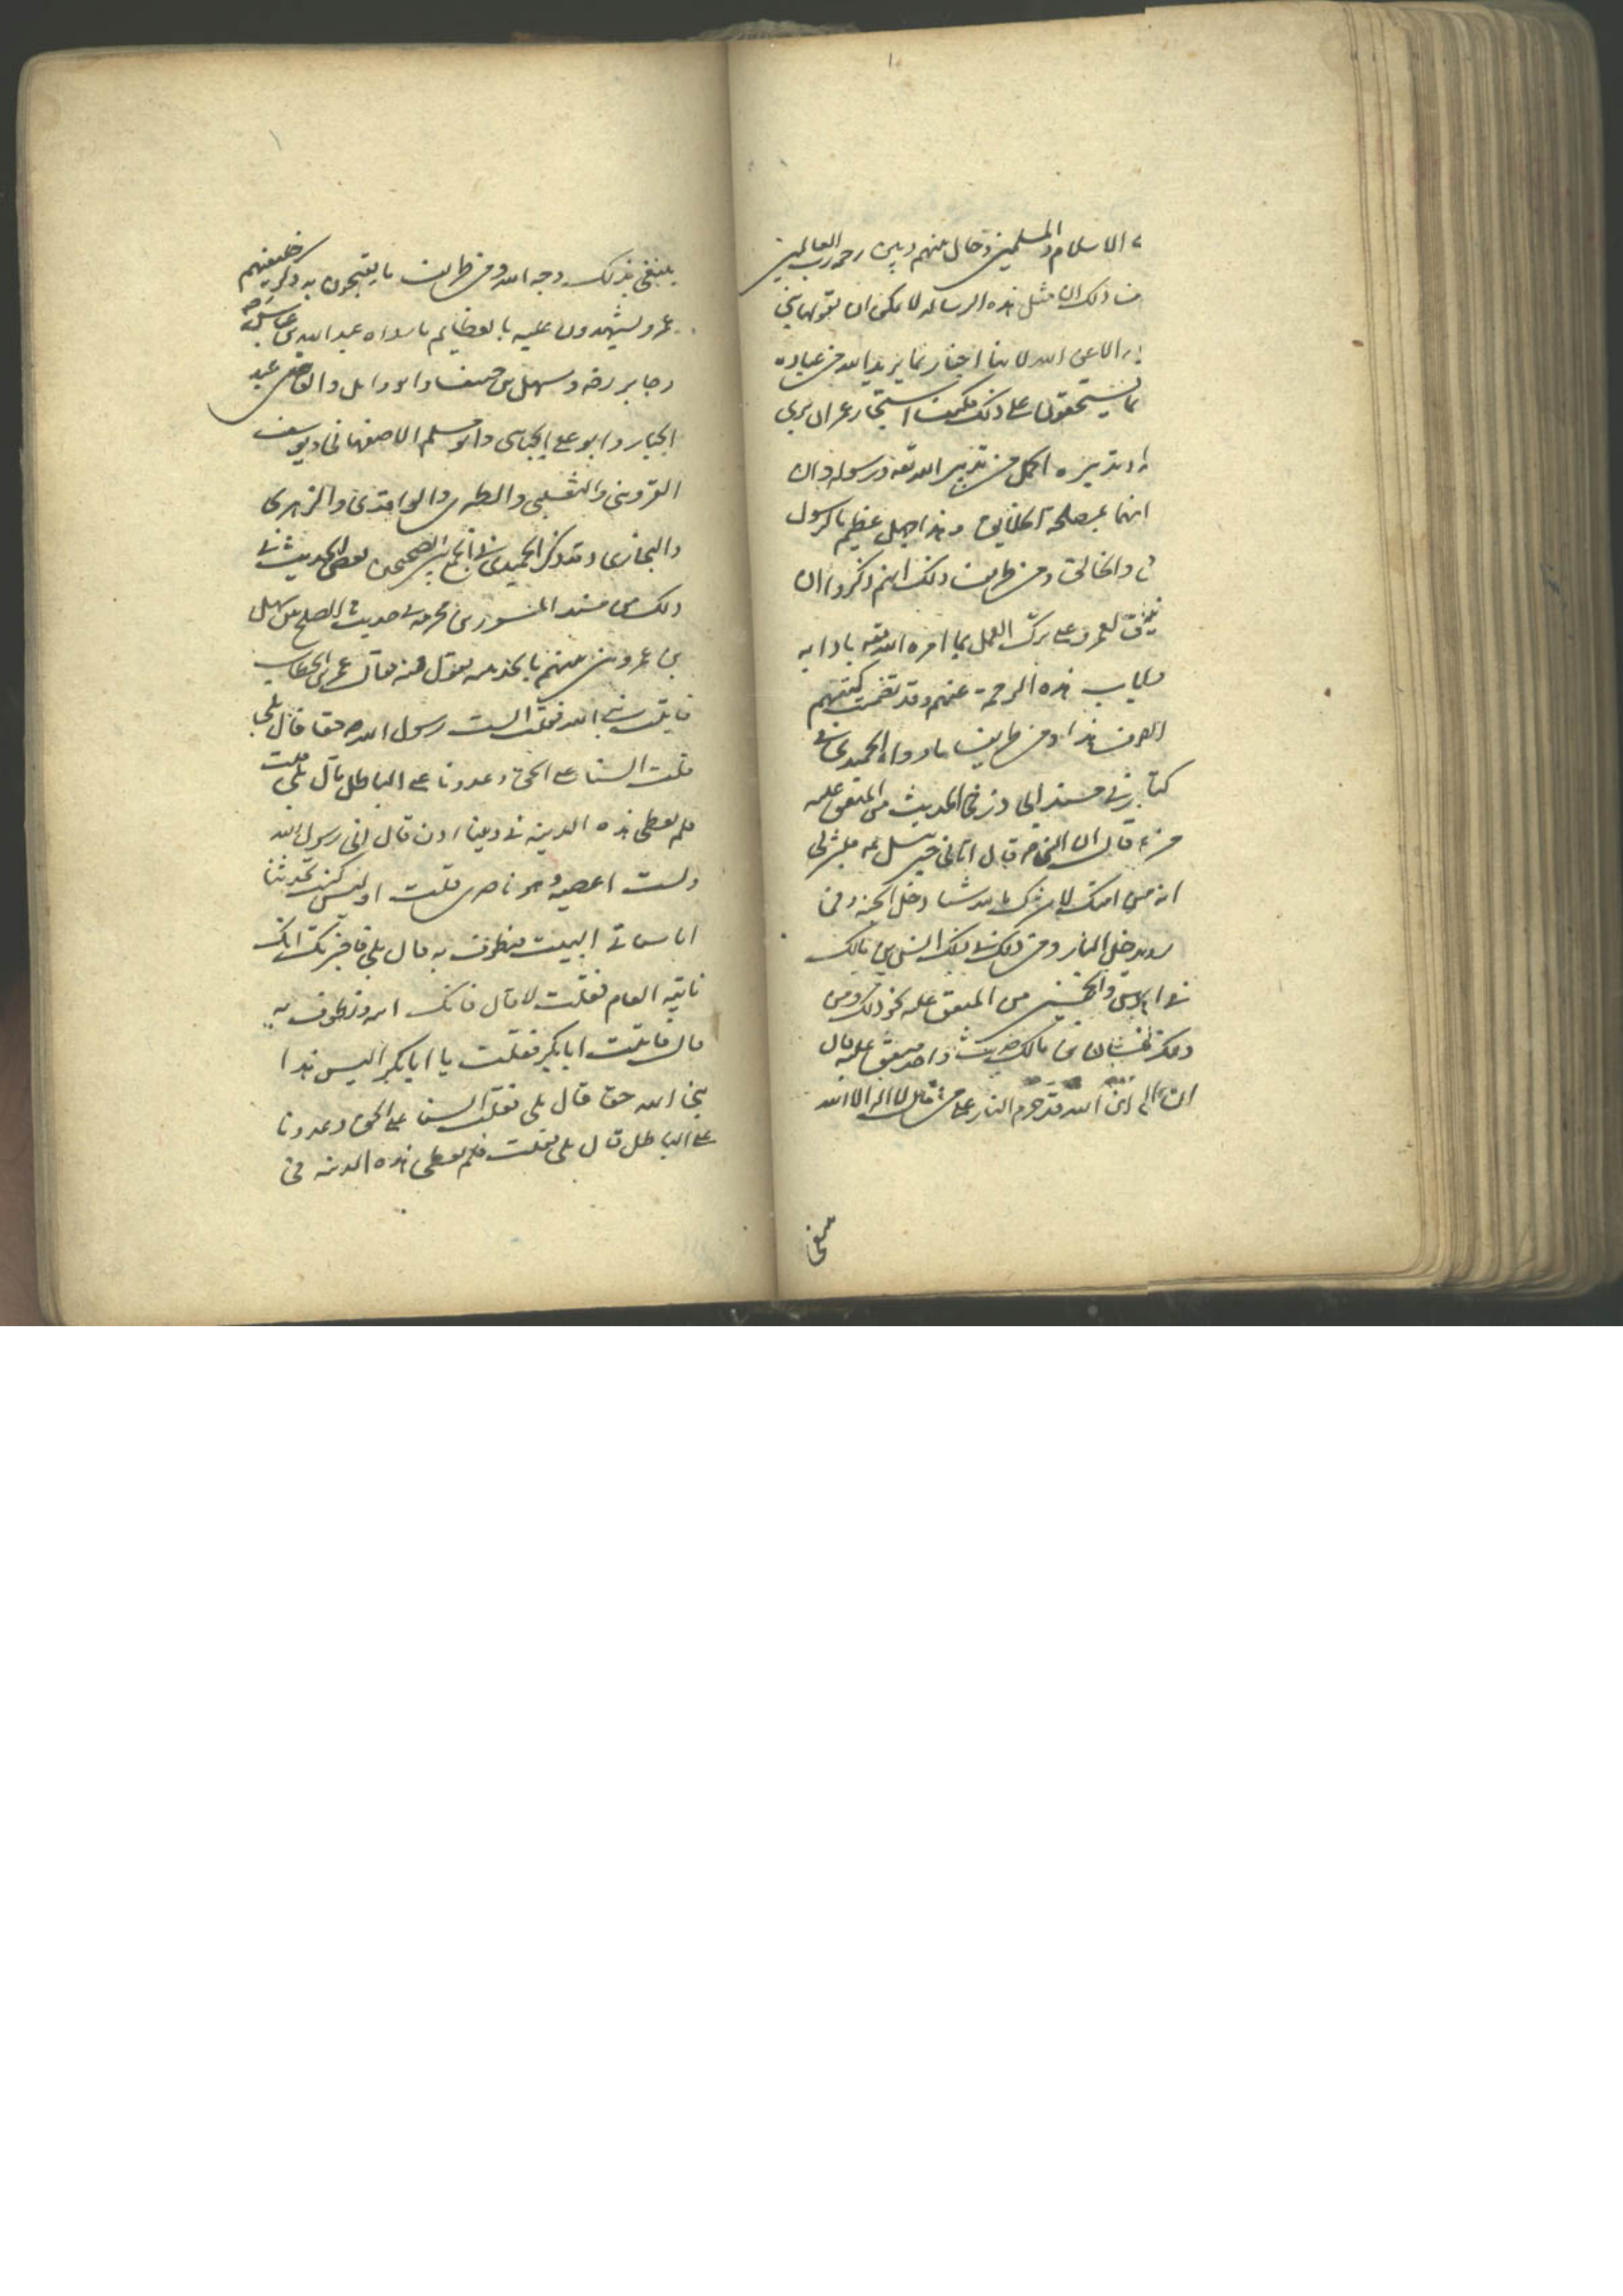 الاسلام والمسلمين وحال بينهم وبين رحمة رب العالمين
ذلك ان مثل هذه الرسالة لا يمكن ان يقولها نبي
الا عن الله لانها اخبار بما يريد الله من عباده
يستحقون على ذلك فكيف استجاز عمر ان يرى
تدبيره اكمل من تدبير الله تعه ورسوله وان
بمصلحة الخلايق وهذا جهل عظيم بالرسول
والخالق ومن طرايف ذلك انهم ذكروا ان
لعمر وعلى ترك العمل بما امره الله تعه باداء
هذه الرحمة عنهم وقد تضمنت كتبهم
هذا ومن طرايف ما رواه الحميدي في
كتابه في مسند ابي ذر في الحديث من المتفق عليه
قال ان النبي ص قال اتاني جبرئيل فبشرني
انه من امتك لا يشرك بالله شيئا دخل الجنة
يدخل النار ومن ذلك في مسند انس بن مالك
من المتفق عليه نحو ذلك ومن
ذلك عتبان بن مالك حديث واحد متفق عليه قال
ان الله قد حرم النار على من قال لا اله الا الله
يبتغي
يبتغي بذلك وجه الله ومن طرايف ما يقبحون به ذكر خليفتهم
عمر ويشهدون عليه بالعظايم ما رواه عبد الله بن عباس
وجابر رضه وسهل بن حنيف وابو وايل والقاضي عبد
الجبار وابو علي الجبائي وابو مسلم الاصفهاني ويوسف
القزويني والثعلبي والطبري والواقدي والزهري
والبخاري وقد ذكر الحميدي في الجمع بين الصحيحين بعض الحديث في
ذلك من مسند المسور بن مخرمة في حديث الصلح بين سهل
بن عمرو وبين النبي بالحديبية يقول فيه فقال عمر بن الخطاب
فاتيت نبي الله فقلت الست رسول الله حقا قال بلى
قلت السنا على الحق وعدونا على الباطل قال بلى قلت
فلم نعطي هذه الدنية في ديننا اذن قال اني رسول الله
ولست اعصيه وهو ناصري قلت اوليس كنت تحدثنا
انا سناتي البيت فنطوف به قال بلى فاخبرتك انك
تاتيه العام فقلت لا قال فانك اتيه وتطوف به
قال فاتيت ابا بكر فقلت يا ابا بكر اليس هذا
نبي الله حقا قال بلى فقلت السنا على الحق وعدونا
على الباطل قال بلى فقلت فلم نعطي هذه الدنية في